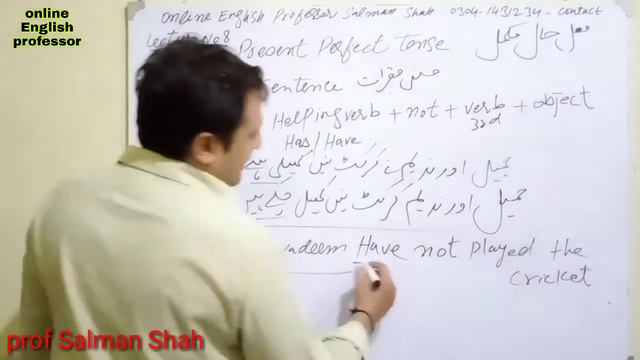 online
English
professor
Online English Professor Salman Shah 0304-1431234-contact
Lecture No 8
Present Perfect Tense فعل حال مکمل
Sentence منفی فقرات
Helping verb + not + verb + object
3rd
Has/Have
جمیل اور ندیم نے کرکٹ نہیں کھیلی ہے
جمیل اور ندیم کرکٹ نہیں کھیل چکے ہیں
nadeem Have not Played the
cricket
prof Salman Shah